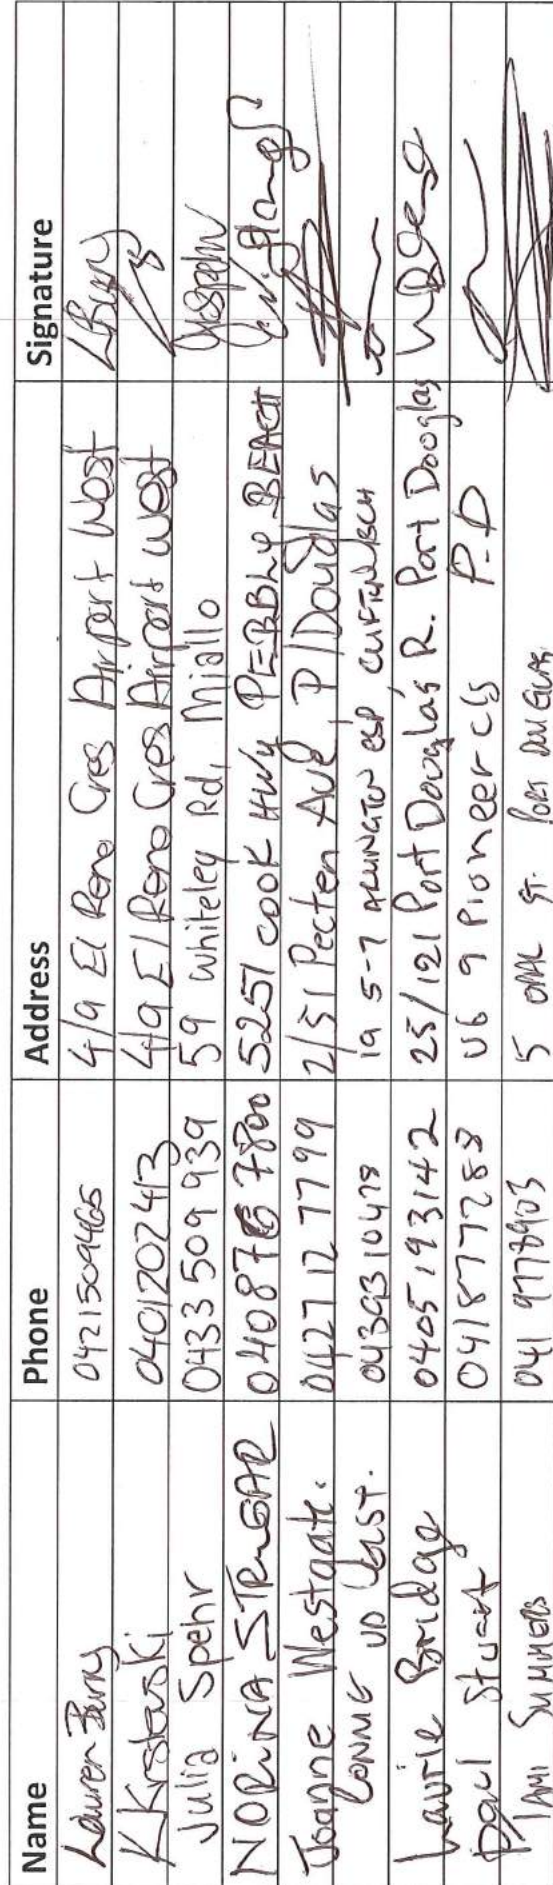 Name Phone Address Signature
Lauren Barry 0421509465 4/9 El Reno Cres Airport West
K Krstevski 0401202413 4/9 El Reno Cres Airport west
Julia Spehr 0433 509 939 59 whiteley Rd, Miallo
NORINA STRNGAR 04087 7800 5251 COOK HWY PEBBLY BEACH
Joanne Westgate. 042712 7799 2/51 Pecten Ave, P/Douglas
CONNIE VD 0439310478 19 5-7 ARLINGTON ESP CLIFTON BCH
Laurie Bridge 0405193142 25/121 Port Douglas R. Port Douglas
Paul Stuart 041877283 U6 9 Pioneer cls P.D
TAMI SUMMERS 041 9778903 5 OPAL ST. PORT DOUGLAS